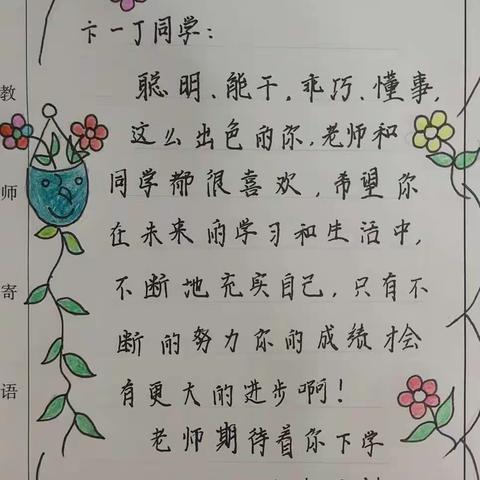 教师寄语
卞一丁同学：
聪明、能干、乖巧、懂事，
这么出色的你，老师和
同学都很喜欢，希望你
在未来的学习和生活中，
不断地充实自己，只有不
断的努力你的成绩才会
有更大的进步啊！
老师期待着你下学